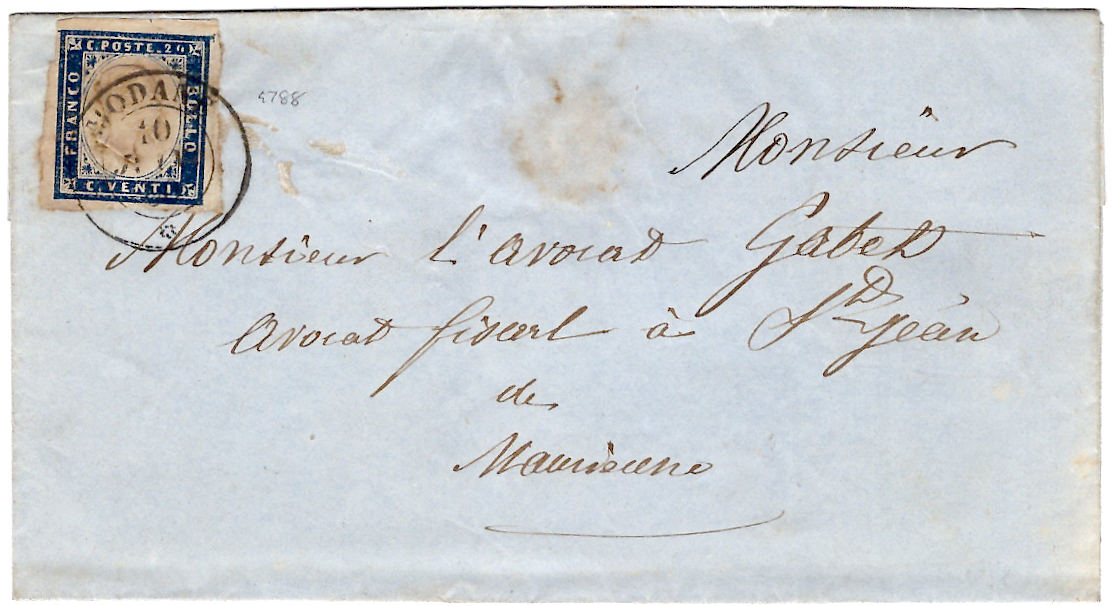 C. POSTE. 20
FRANCO
BOLLO
C. VENTI.
MODANE
10
4788
Monsieur
Monsieur l'avocat Gabet
Avocat fiscal à St Jean
de
Maurienne